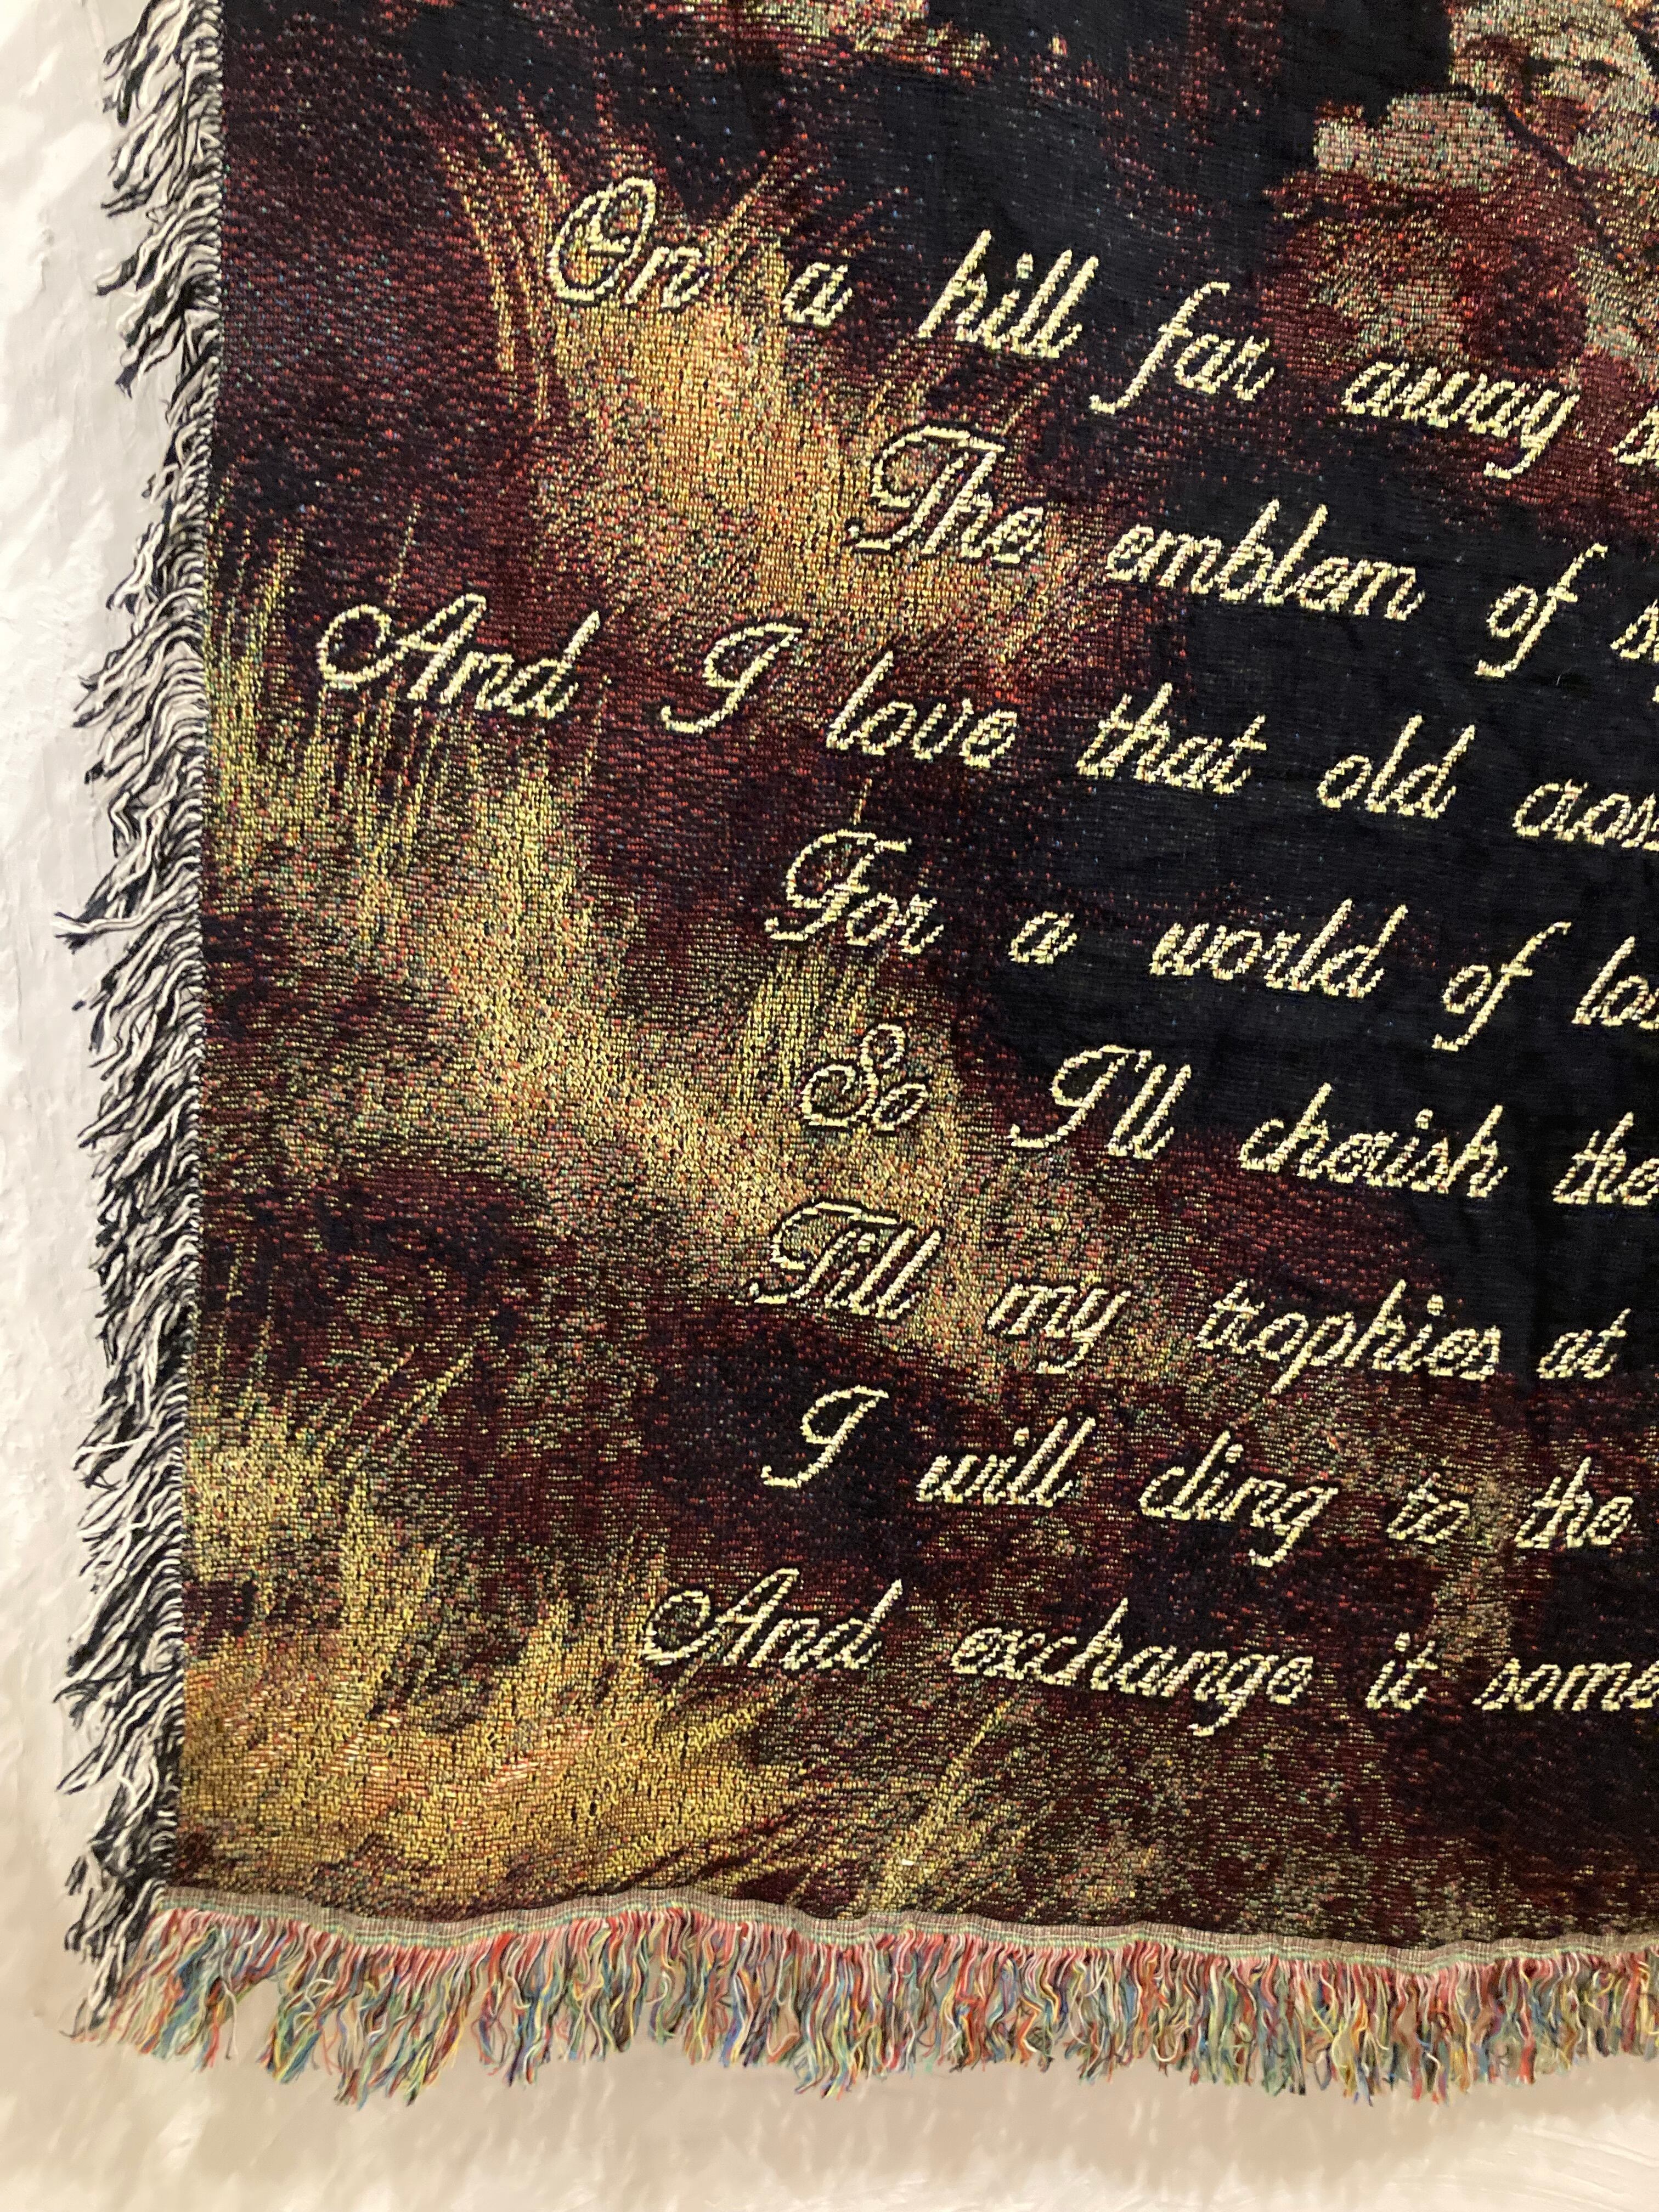 On a hill far away
The emblem of
And I love that old cross
For a world of
So I'll cherish the
Till my trophies at
I will cling to the
And exchange it some